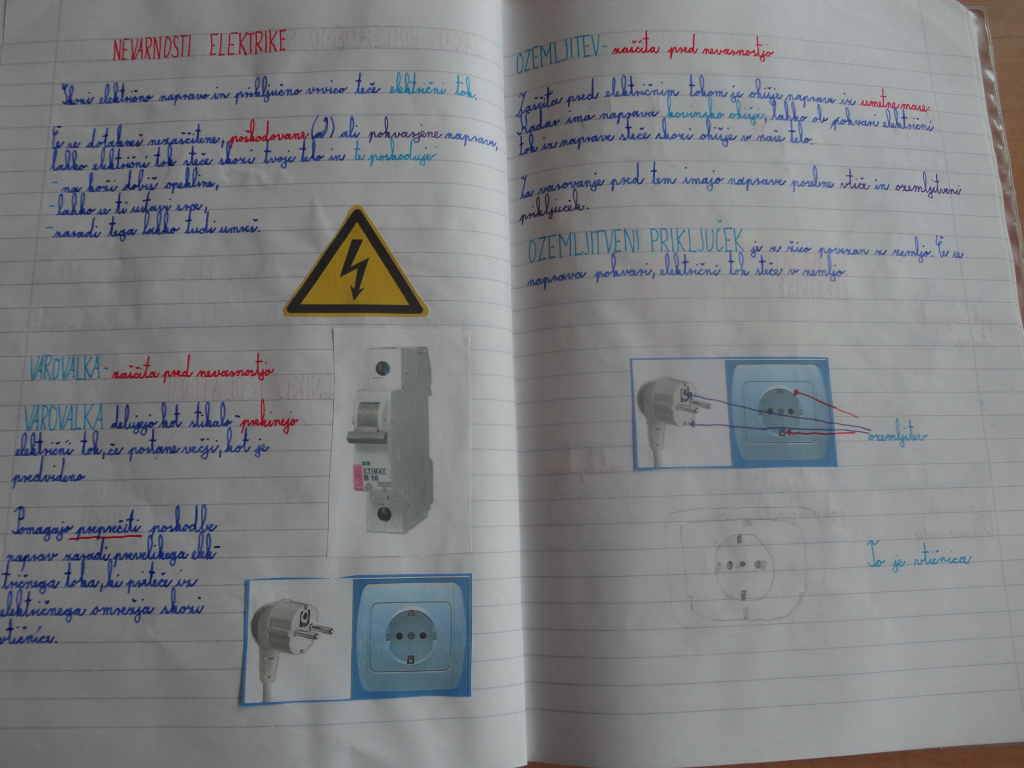 NEVARNOSTI ELEKTRIKE
Skozi električno napravo in priključno vrvico teče električni tok.
Če se dotakneš nezaščitene, poškodovane (a?) ali pokvarjene naprave,
lahko električni tok steče skozi tvoje telo in te poškoduje
- na koži dobiš opekline,
- lahko se ti ustavi srce,
- zaradi tega lahko tudi umreš.
VAROVALKA - zaščita pred nevarnostjo
VAROVALKA delujejo kot stikalo - prekinejo
električni tok, če postane večji, kot je
predvideno
Pomagajo preprečiti poškodbe
naprav zaradi prevelikega elek-
tričnega toka, ki priteče iz
električnega omrežja skozi
vtičnice.
ETIMAT
B 16
OZEMLJITEV - zaščita pred nevarnostjo
Zaščita pred električnim tokom je ohišje naprave iz umetne mase.
Kadar ima naprava kovinsko ohišje, lahko ob okvari električni
tok iz naprave steče skozi ohišje v naše telo.
Za varovanje pred tem imajo naprave posebne vtiče in ozemljitveni
priključek.
OZEMLJITVENI PRIKLJUČEK je z žico povezan z zemljo. Če se
naprava pokvari, električni tok steče v zemljo
ozemljitev
To je vtičnica